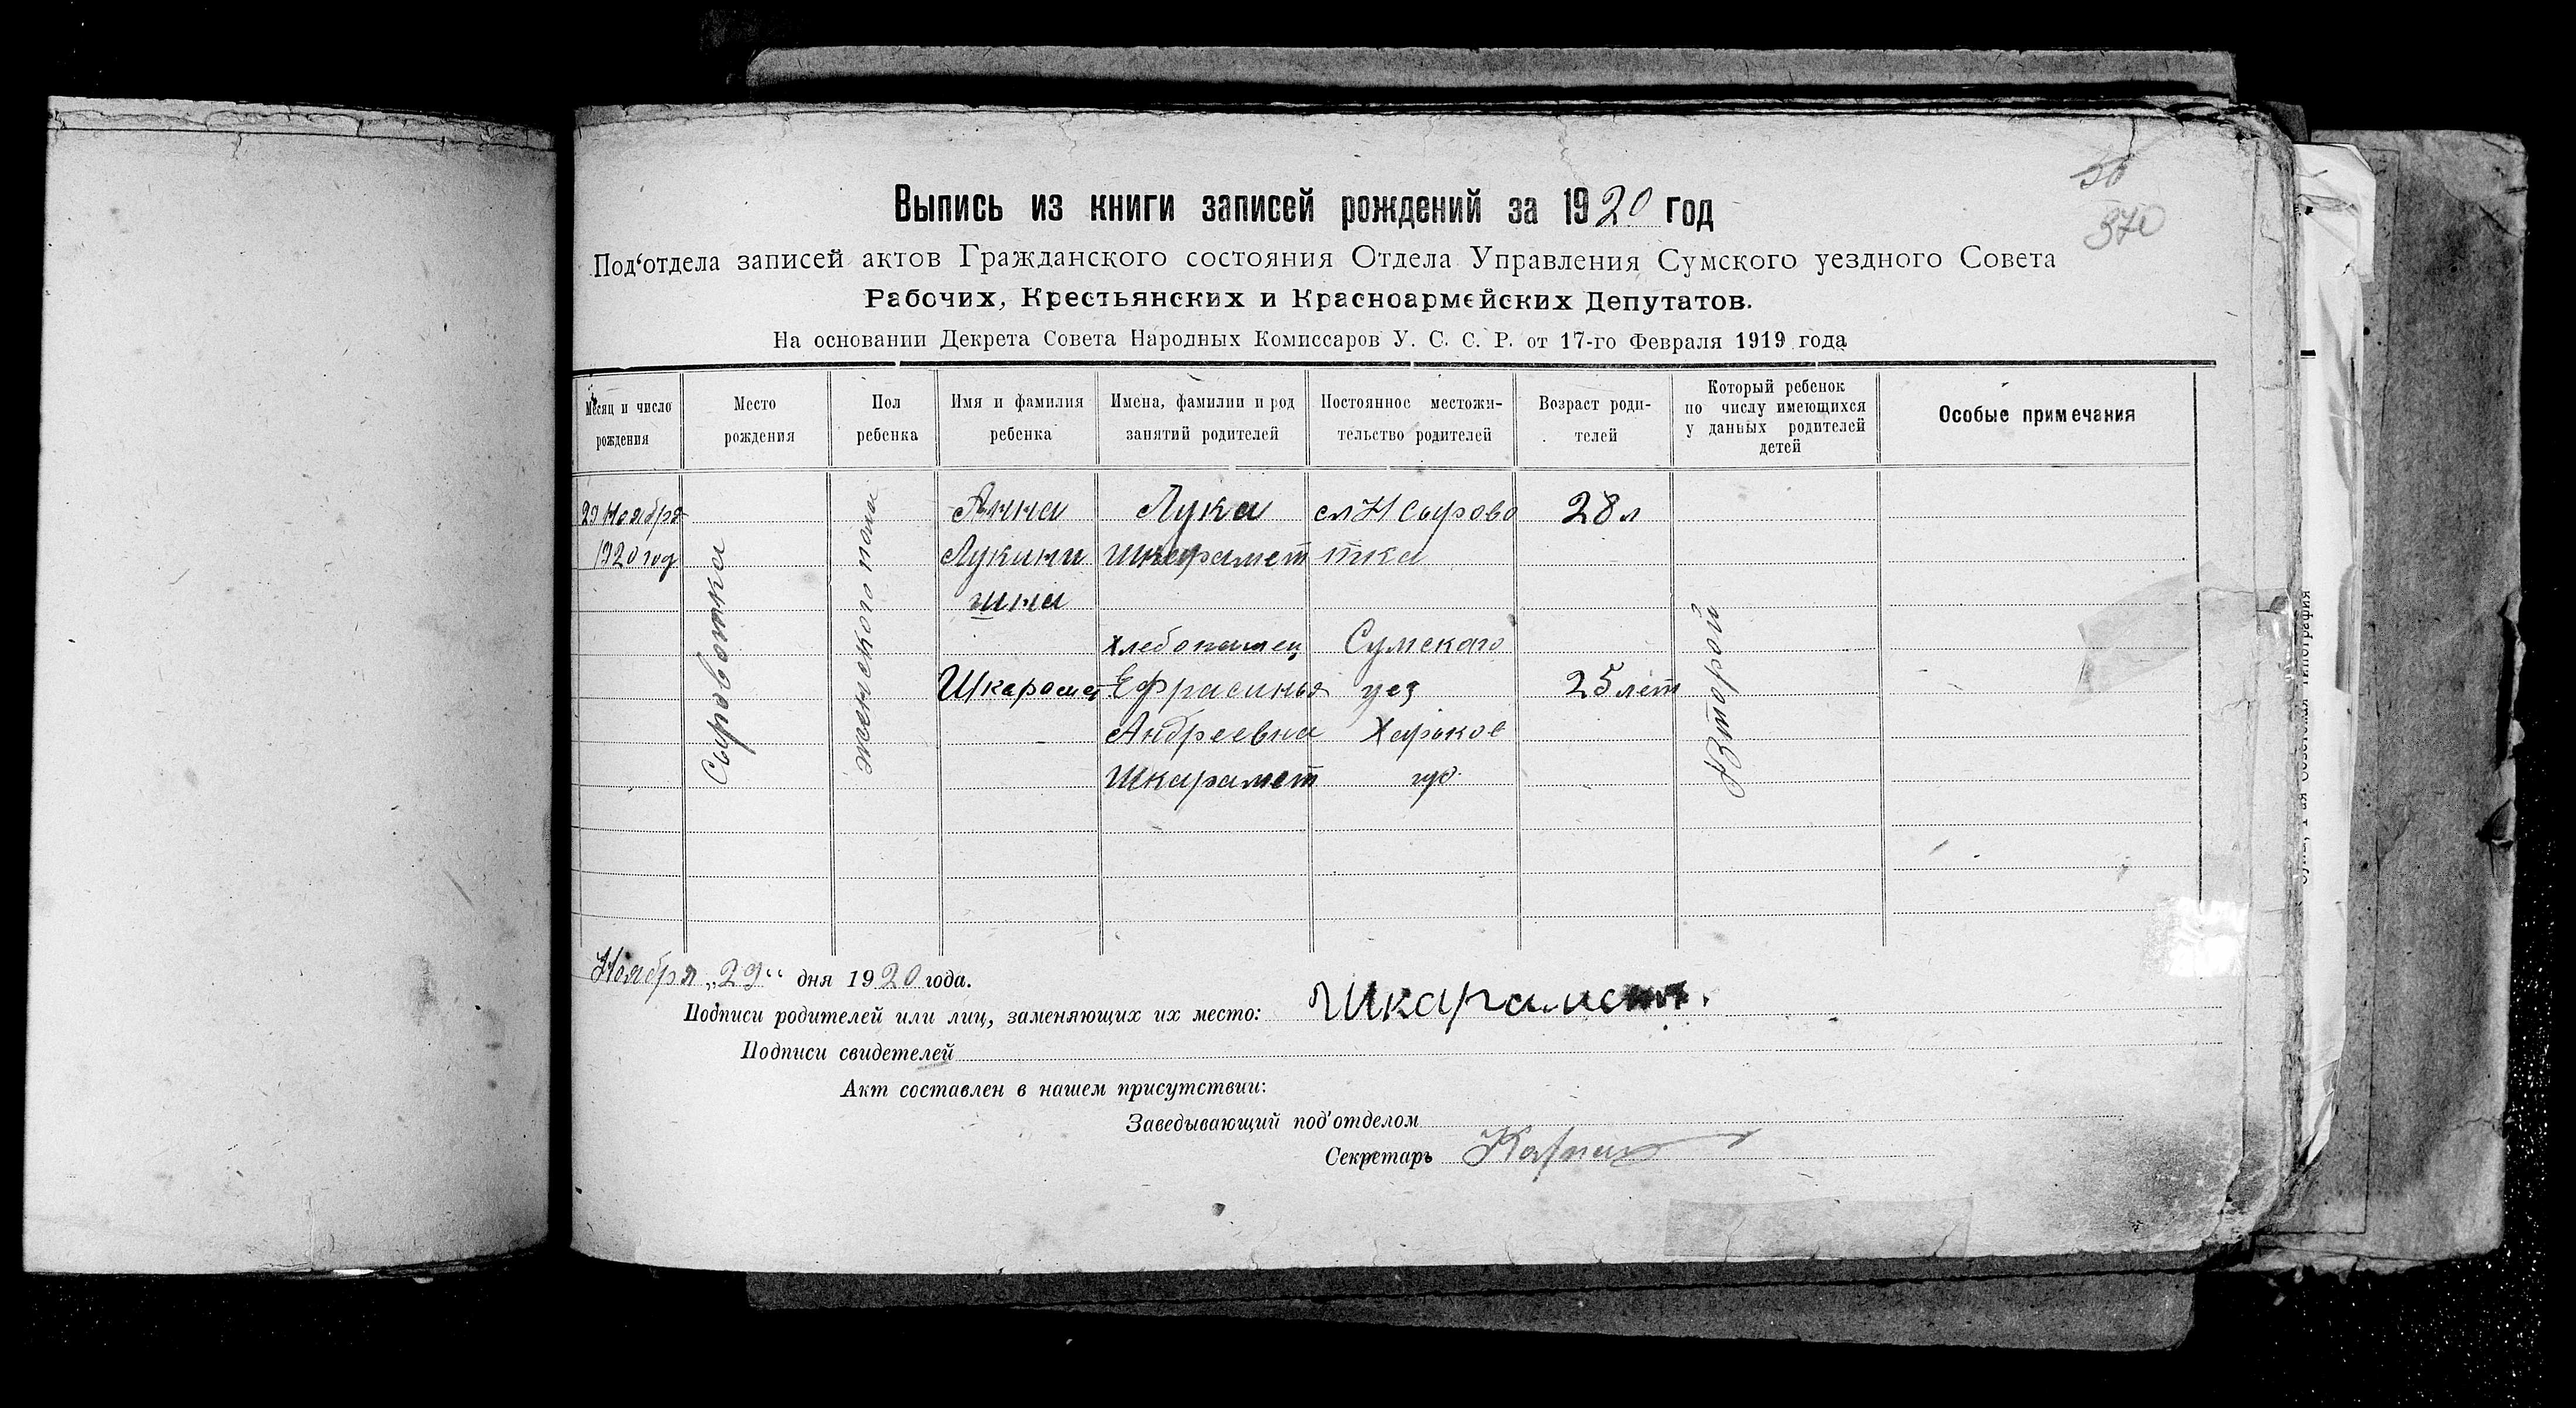 50
370
Выпись из книги записей рождений за 1920 год
Под‘отдела записей актов Гражданского состояния Отдела Управления Сумского уездного Совета
Рабочих, Крестьянских и Красноармейских Депутатов.
На основании Декрета Совета Народных Комиссаров У. С. С. Р. от 17-го Февраля 1919 года
Месяц и число рождения
Место рождения
Пол ребенка
Имя и фамилия ребенка
Имена, фамилии и род занятий родителей
Постоянное местожительство родителей
Возраст родителей
Который ребенок по числу имеющихся у данных родителей детей
Особые примечания
29 Ноября
1920 год
Сыроватка
женского пола
Анна
Лукини
шна
Шкарамет
Лука
Шкарамет
хлебопашец
Ефрасинья
Андреевна
Шкарамет
сл Н Сырова
тка
Сумскаго
уез
Харьков
губ.
28 л
25 лет
Второй
Ноября „29“ дня 1920 года.
Подписи родителей или лиц, заменяющих их место: Шкарамет.
Подписи свидетелей
Акт составлен в нашем присутствии:
Заведывающий под'отделом
Секретарь